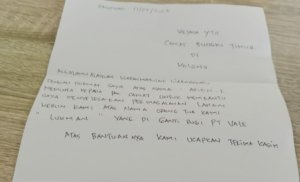 KEPADA YTH
CAMAT BUNGKU TIMUR
DI
KOLONO
ASSALAMUALAIKUM WARAHMATULLAHI WABARAKATUH
DENGAN HORMAT SAYA ATAS NAMA : ARIFIN L
MEMINTA KEPADA PAK CAMAT UNTUK MEMBANTU
SAYA MENYELESAIKAN PERMASALAHAN LAHAN
KEBUN KAMI ATAS NAMA ORANG TUA KAMI
" LUKMAN " YANG DI GANTI RUGI PT VALE
ATAS BANTUANNYA KAMI UCAPKAN TERIMA KASIH